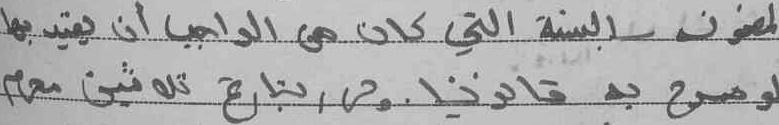 المضمون بالسنة التي كان من الواجب أن يقيد بها
لو صرح به قانونيا. وحرر بتاريخ ثلاثين محرم